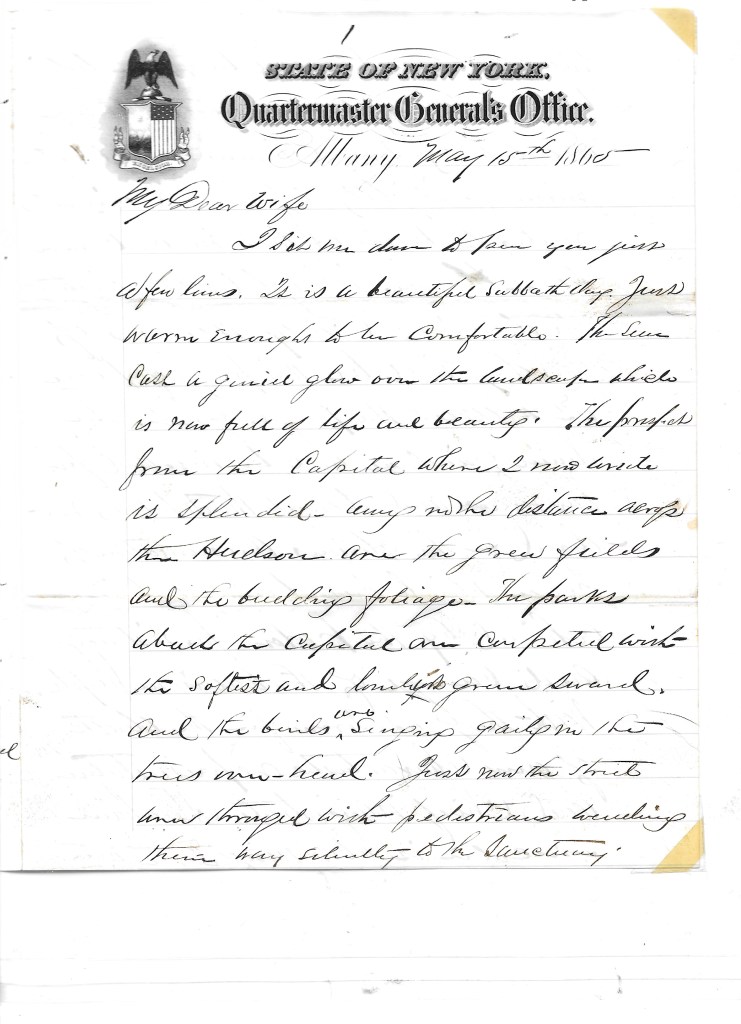 1
STATE OF NEW YORK.
Quartermaster General's Office.
Albany, May 15th 1865
My Dear Wife
I sit me down to pen you just
a few lines. It is a beautiful Sabbath day. Just
warm enough to be comfortable. The Sun
Cast a genial glow over the landscape which
is now full of life and beauty. The prospect
from the Capital where I now write
is splendid - away in the distance across
the Hudson are the green fields
and the budding foliage - The parks
about the Capital are carpeted with
the softest and green sward.
And the birds are singing gaily in the
trees over-head. Just now the street
are thronged with pedestrians wending
their way silently to the Sanctuary.